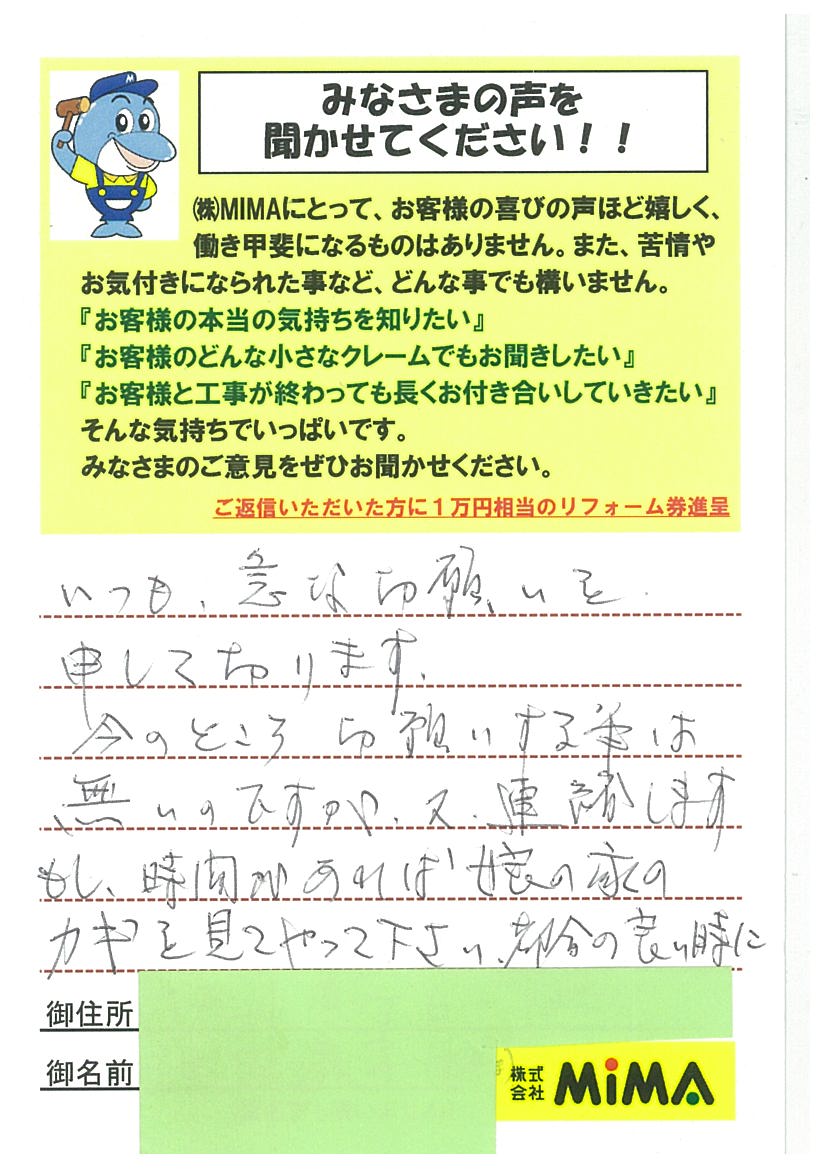 M
みなさまの声を
聞かせてください！！
㈱MIMAにとって、お客様の喜びの声ほど嬉しく、
働き甲斐になるものはありません。また、苦情や
お気付きになられた事など、どんな事でも構いません。
『お客様の本当の気持ちを知りたい』
『お客様のどんな小さなクレームでもお聞きしたい』
『お客様と工事が終わっても長くお付き合いしていきたい』
そんな気持ちでいっぱいです。
みなさまのご意見をぜひお聞かせください。
ご返信いただいた方に１万円相当のリフォーム券進呈
いつも、急なお願いを
申しております。
今のところお願いする事は
無いのですが、又、連絡します
もし、時間があれば娘の家の
カギを見てやって下さい、都合の良い時に
御住所
御名前
株式会社 MiMA